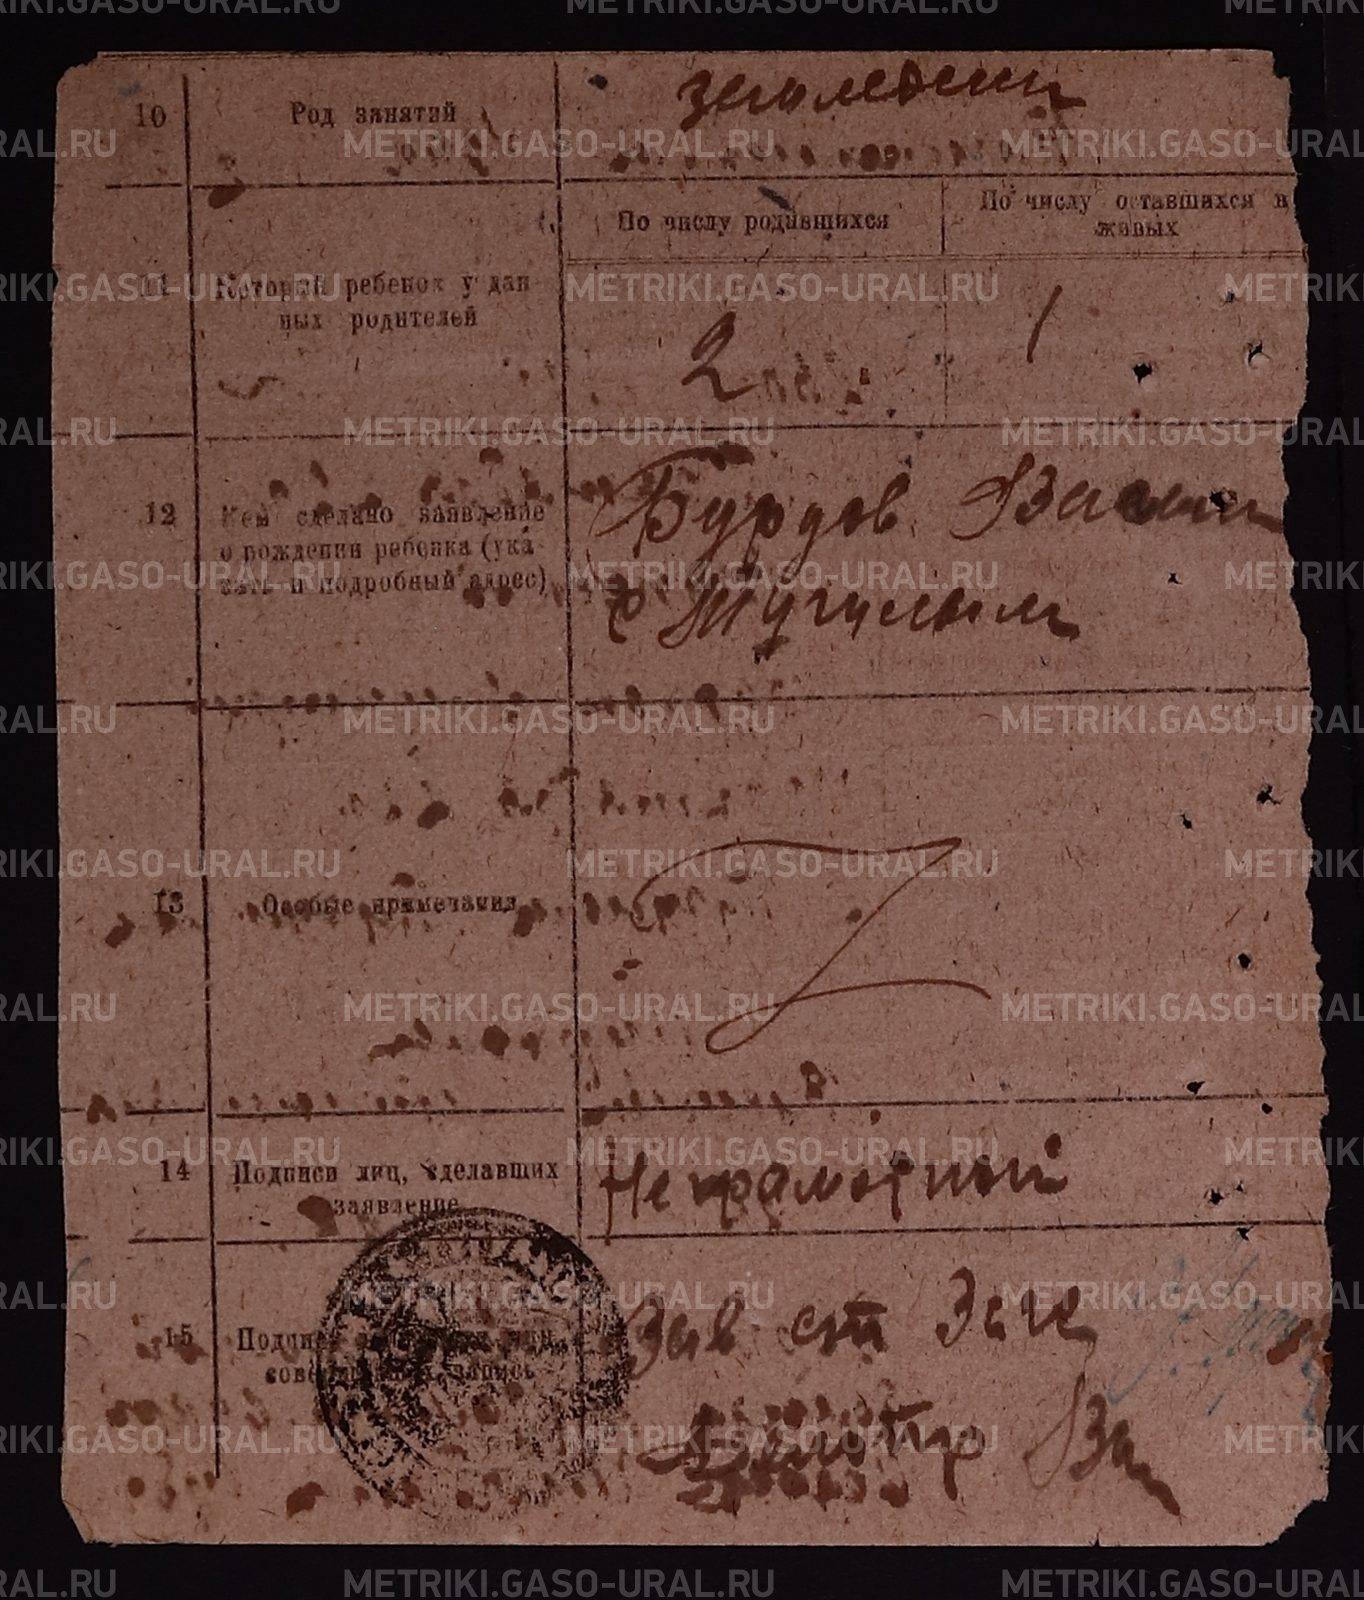 10 Род занятий
земледели
По числу родившихся
По числу оставшихся в
живых
11 Который ребенок у дан-
ных родителей
2
1
12 Кем сделано заявление
о рождении ребенка (ука-
зать и подробный адрес)
Бурдов Васили
с Тугулым
13 Особые примечания
14 Подписи лиц, сделавших
заявление
Неграмотный
15
запись
Зав ст
METRIKI.GASO-URAL.RU